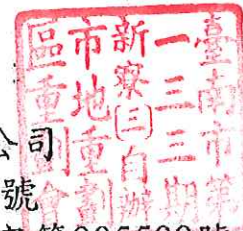 臺南市第
一三三期
新寮(三)自辦
市地重劃
區重劃會
公司
號